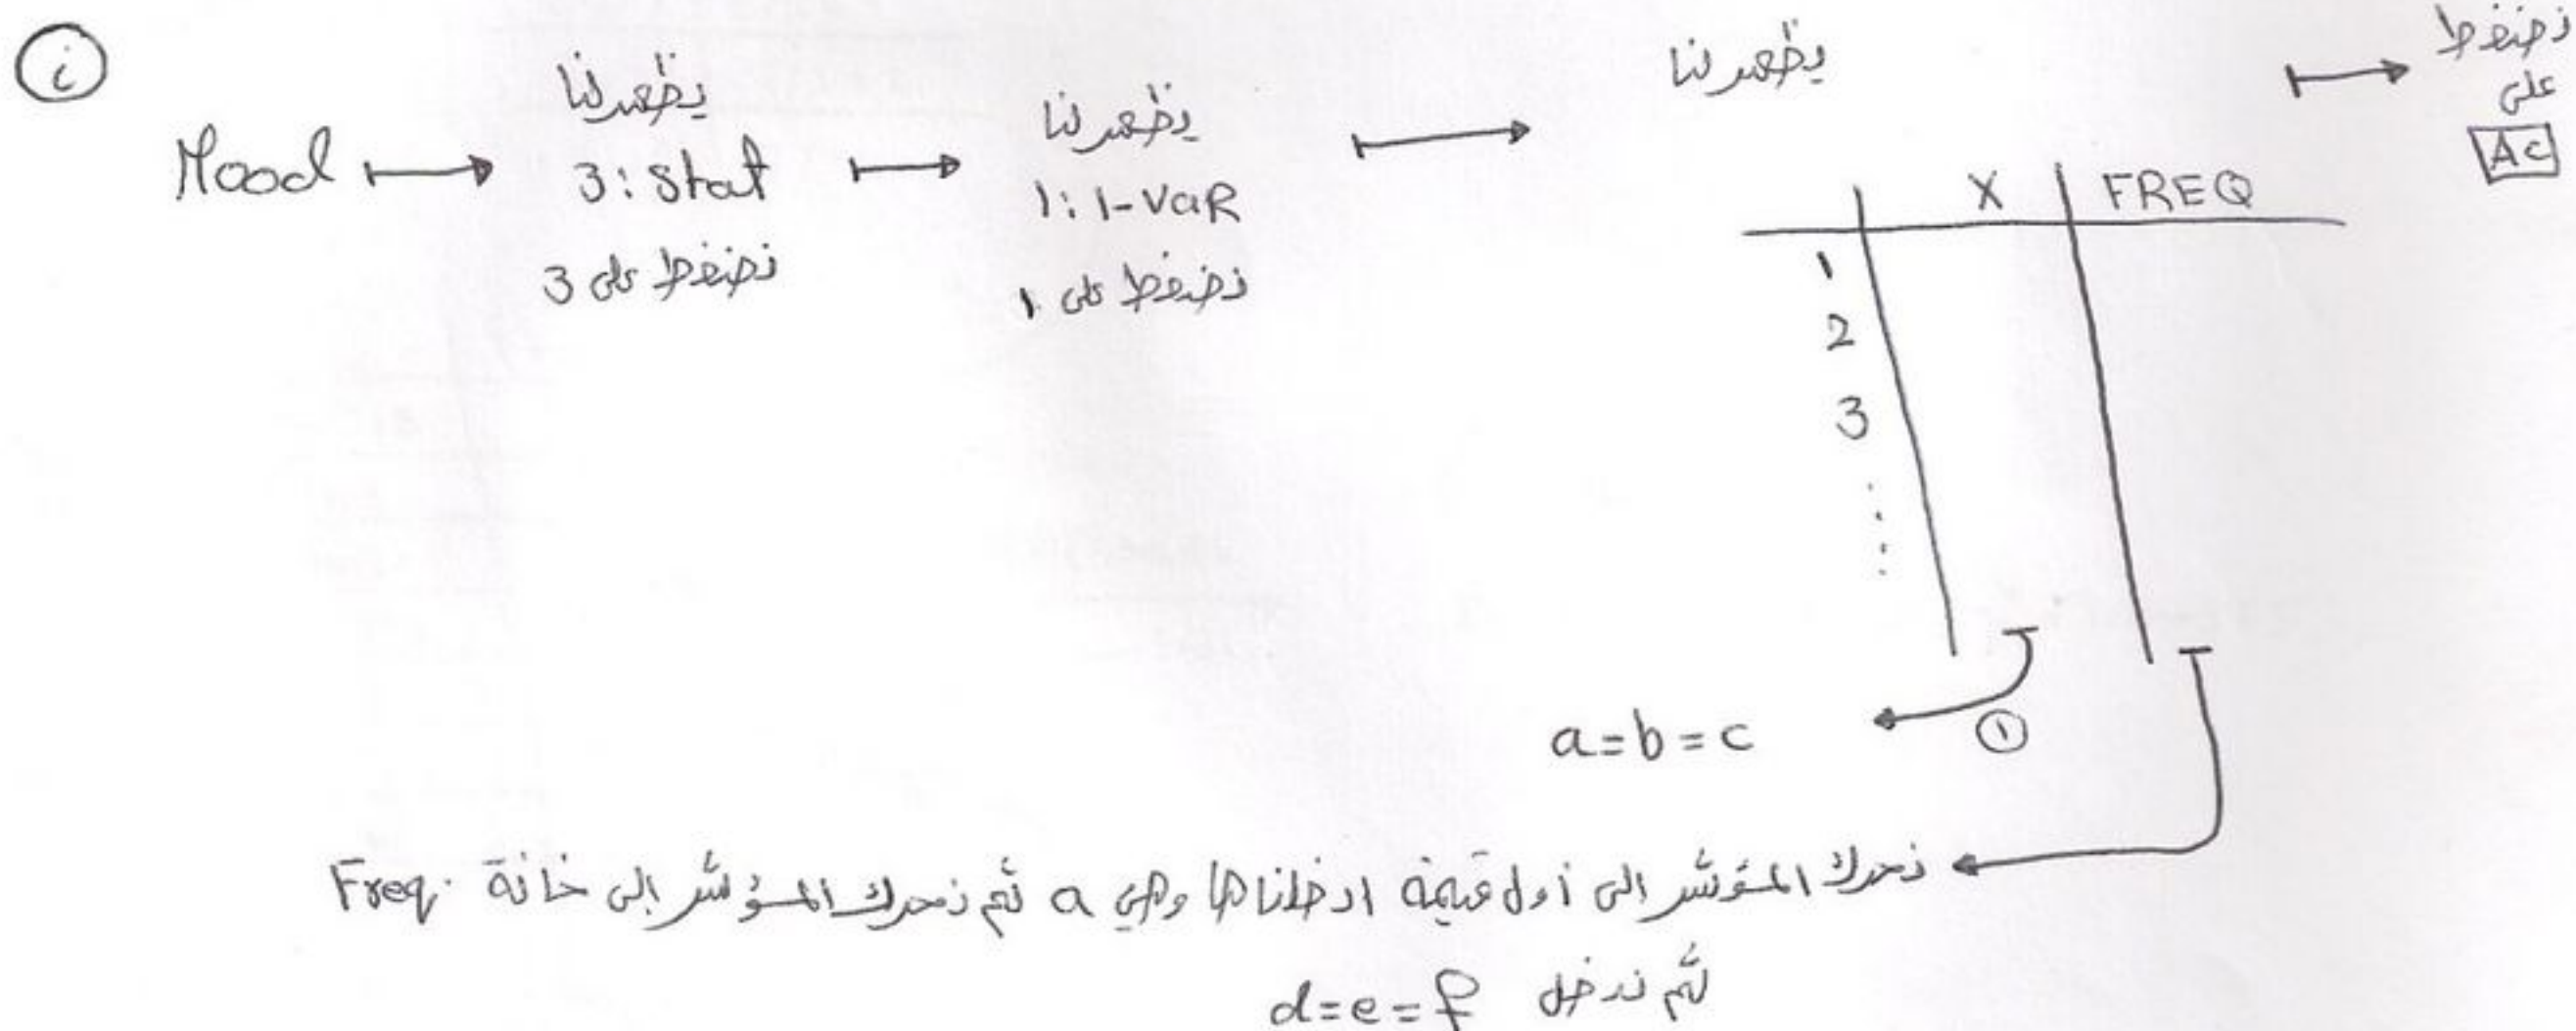 i
Mood
يظهر لنا
3: Stat
نضغط على 3
يظهر لنا
1: 1-VaR
نضغط على 1
يظهر لنا
X FREQ
1
2
3
نضغط
على
AC
a=b=c
1
نحرك المؤشر الى أول قيمة ادخلناها وهي a ثم نحرك المؤشر إلى خانة Freq.
ثم ندخل d=e=f